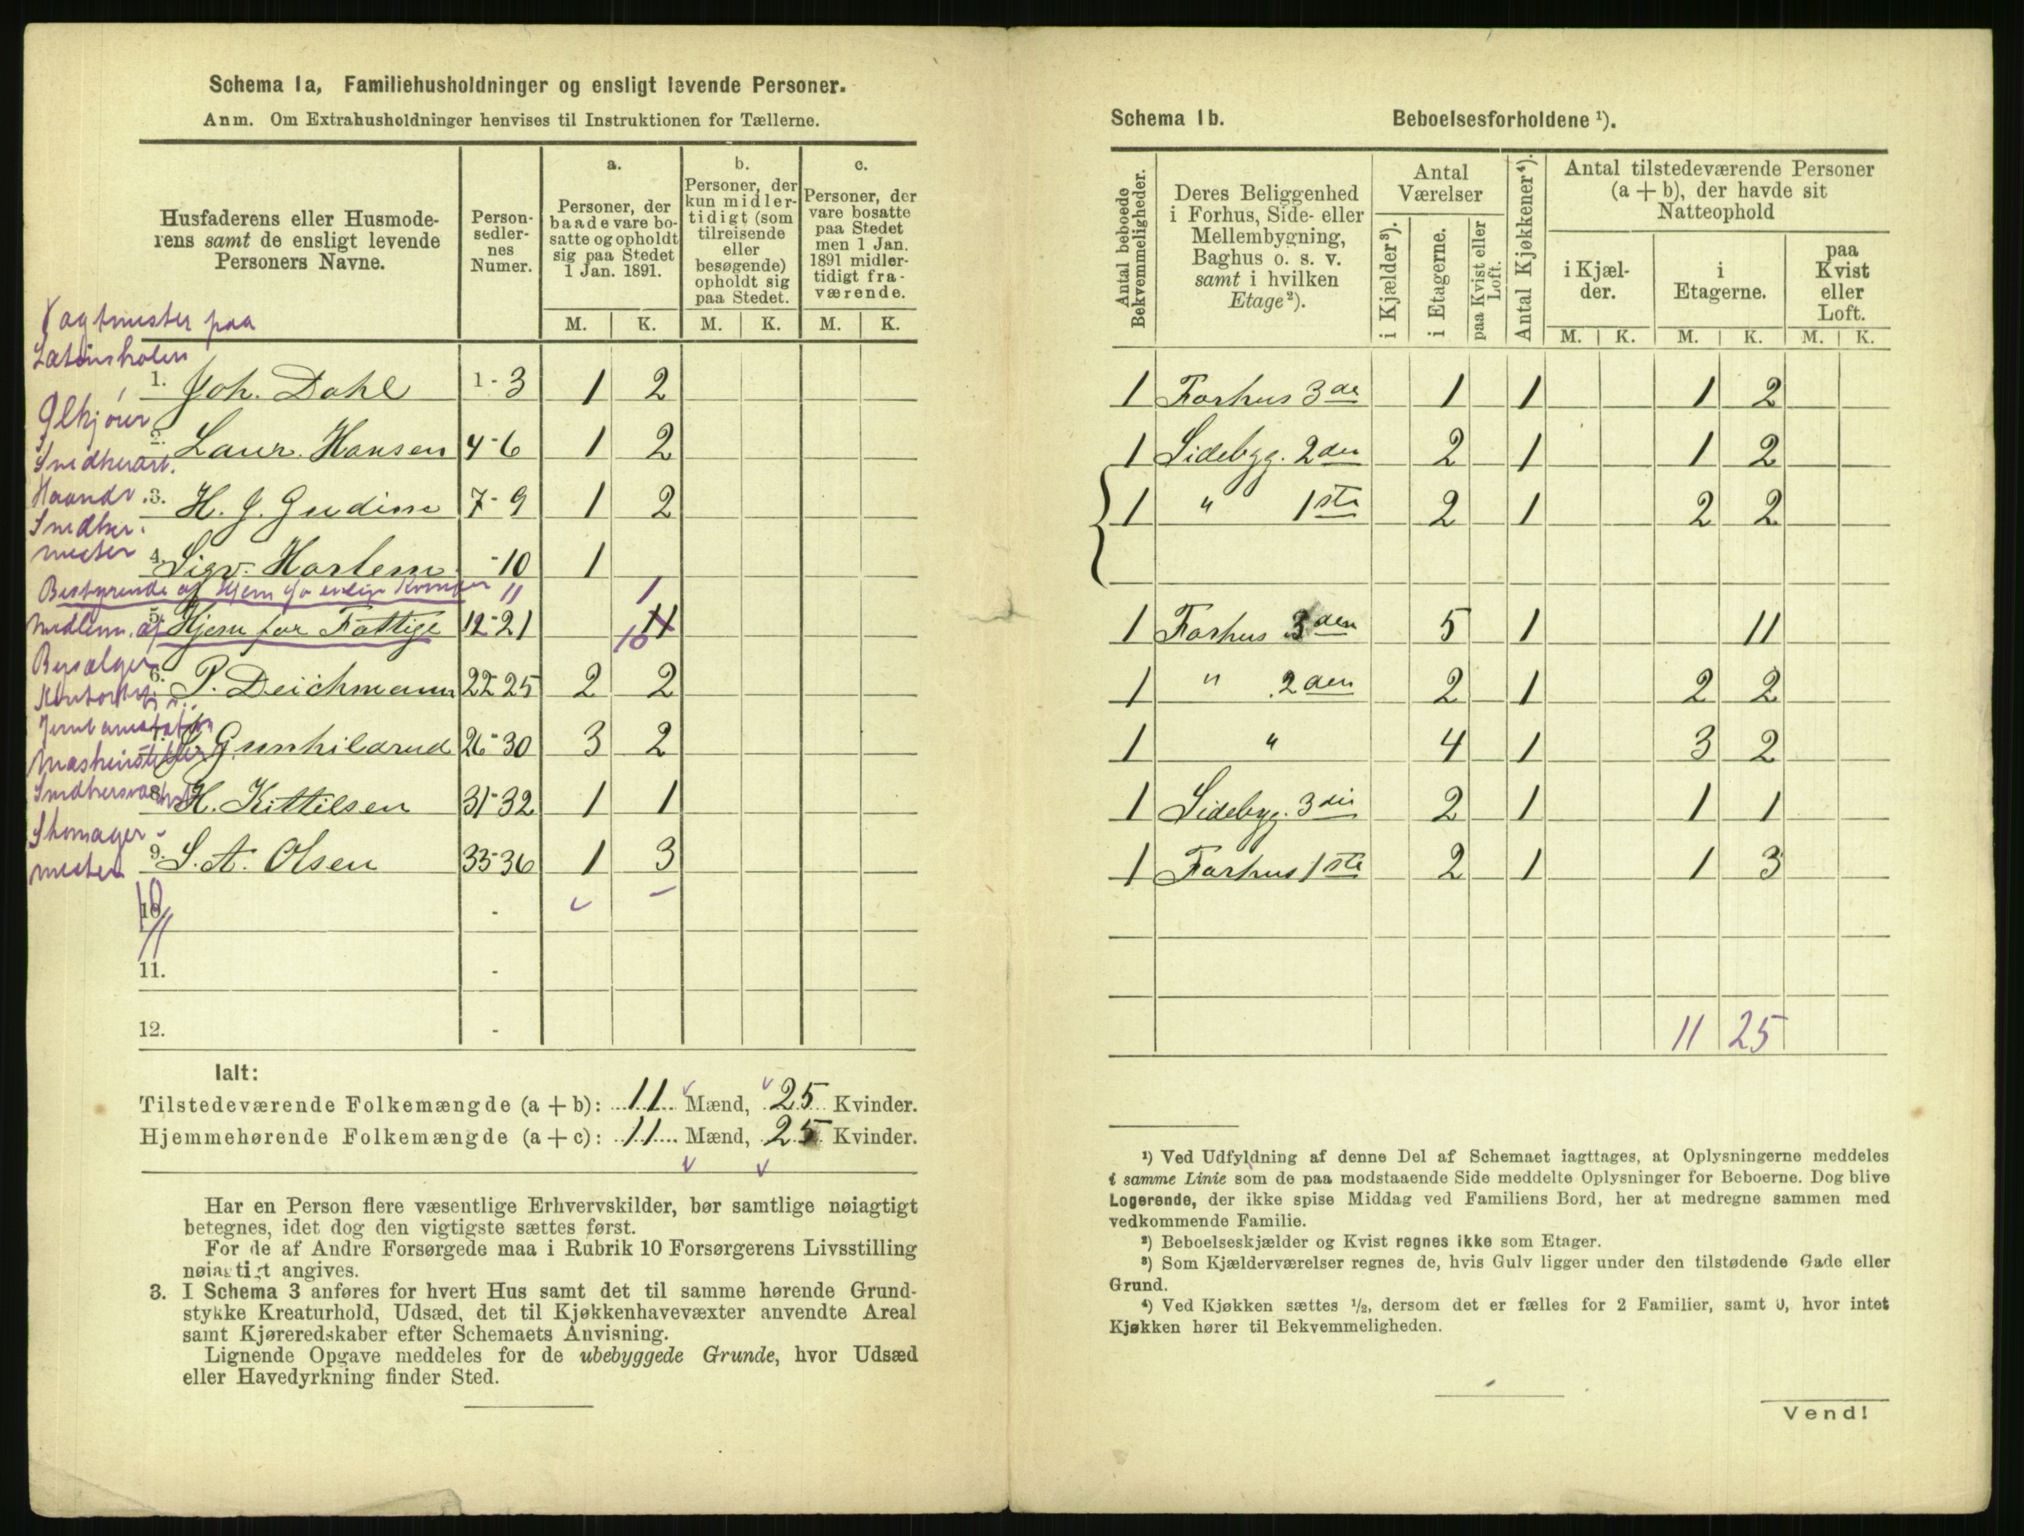 Schema 1a, Familiehusholdninger og ensligt levende Personer.
Anm. Om Extrahusholdninger henvises til Instruktionen for Tællerne.
Husfaderens eller Husmode-
rens samt de ensligt levende
Personers Navne.
Person-
sedler-
nes
Numer.
a.
Personer, der
baade vare bo-
satte og opholdt
sig paa Stedet
1 Jan. 1891.
b.
Personer, der
kun midler-
tidigt (som
tilreisende
eller
besøgende)
opholdt sig
paa Stedet.
c.
Personer, der
vare bosatte
paa Stedet
men 1 Jan.
1891 midler-
tidigt fra-
værende.
M. K. M. K. M. K.
Vagtmester paa
Latinskolen
1. Joh. Dahl 1-3 1 2
Ølkjører
2. Laur. Hansen 4-6 1 2
Snedkerarb.
Haandv.
3. H. J. Gudim 7-9 1 2
Snedker-
mester
4. Sigv. Harlem -10 1
Bestyrende af Hjem for enlige Kvinder 11 1
Medlem. af
5. Hjem for Fattige 12-21 11 10
6. P. Deichmann 22-25 2 2
7. Gunhildrud 26-30 3 2
8. H. Kittilsen 31-32 1 1
Skomager-
mester
9. S. A. Olsen 33-36 1 3
10. -
11
11. -
12. -
Ialt:
Tilstedeværende Folkemængde (a + b): 11 Mænd, 25 Kvinder.
Hjemmehørende Folkemængde (a + c): 11 Mænd, 25 Kvinder.
Har en Person flere væsentlige Erhvervskilder, bør samtlige nøiagtigt
betegnes, idet dog den vigtigste sættes først.
For de af Andre Forsørgede maa i Rubrik 10 Forsørgerens Livsstilling
nøiagtigt angives.
3. I Schema 3 anføres for hvert Hus samt det til samme hørende Grund-
stykke Kreaturhold, Udsæd, det til Kjøkkenhavevæxter anvendte Areal
samt Kjøreredskaber efter Schemaets Anvisning.
Lignende Opgave meddeles for de ubebyggede Grunde, hvor Udsæd
eller Havedyrkning finder Sted.
Schema 1b. Beboelsesforholdene ¹).
Antal beboede
Bekvemmeligheder.
Deres Beliggenhed
i Forhus, Side- eller
Mellembygning,
Baghus o. s. v.
samt i hvilken
Etage²).
Antal
Værelser
i Kjælder³).
i Etagerne.
paa Kvist eller
Loft.
Antal Kjøkkener⁴).
Antal tilstedeværende Personer
(a + b), der havde sit
Natteophold
i Kjæl-
der.
i
Etagerne.
paa
Kvist
eller
Loft.
M. K. M. K. M. K.
1 Forhus 3de 1 1 1 2
1 Sidebyg. 2den 2 1 1 2
1 " 1ste 2 1 2 2
1 Forhus 3den 5 1 11
1 " 2den 2 1 2 2
1 " 4 1 3 2
1 Sidebyg. 3die 2 1 1 1
1 Forhus 1ste 2 1 1 3
11 25
¹) Ved Udfyldning af denne Del af Schemaet iagttages, at Oplysningerne meddeles
i samme Linie som de paa modstaaende Side meddelte Oplysninger for Beboerne. Dog blive
Logerende, der ikke spise Middag ved Familiens Bord, her at medregne sammen med
vedkommende Familie.
²) Beboelseskjælder og Kvist regnes ikke som Etager.
³) Som Kjælderværelser regnes de, hvis Gulv ligger under den tilstødende Gade eller
Grund.
⁴) Ved Kjøkken sættes ½, dersom det er fælles for 2 Familier, samt 0, hvor intet
Kjøkken hører til Bekvemmeligheden.
Vend!